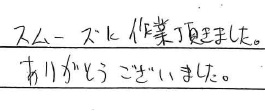 スムーズに作業頂きました。
ありがとうございました。